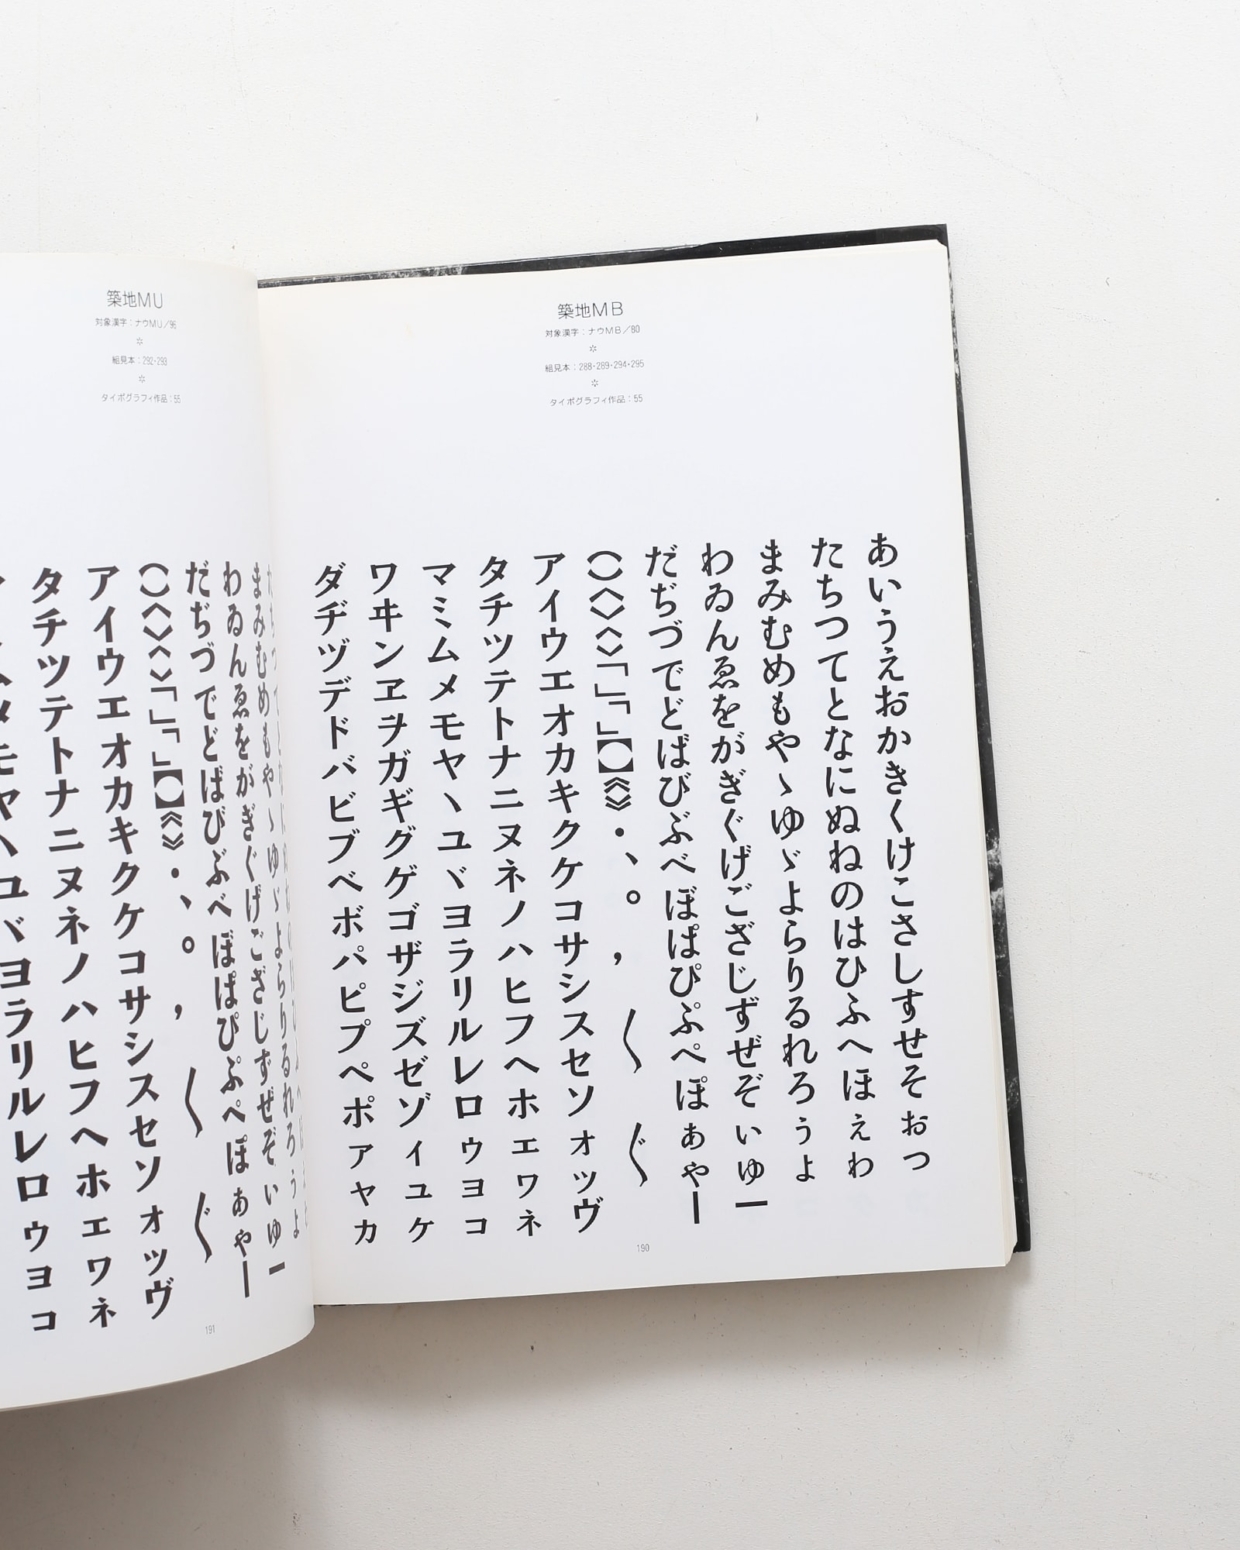 築地MB
対象漢字：ナウMB／80
✡
組見本：288・289・294・295
✡
タイポグラフィ作品：55
あいうえおかきくけこさしすせそぉっ
たちつてとなにぬねのはひふへほぇゎ
まみむめもやゝゆゞよらりるれろぅょ
わゐんゑをがぎぐげござじずぜぞぃゅー
だぢづでどばびぶべぼぱぴぷぺぽぁゃー
（）〈〉〈〉「」「」【】《》・、。，〱〲
アイウエオカキクケコサシスセソォッヴ
タチツテトナニヌネノハヒフヘホェヮネ
マミムメモヤヽユヾヨラリルレロゥョコ
ワヰンヱヲガギグゲゴザジズゼゾィュヶ
ダヂヅデドバビブベボパピプペポァャヵ
190
築地MU
対象漢字：ナウMU／95
✡
組見本：292・293
✡
タイポグラフィ作品：55
まみむめもやゝゆゞよらりるれろぅょ
わゐんゑをがぎぐげござじずぜぞぃゅー
だぢづでどばびぶべぼぱぴぷぺぽぁゃー
（）〈〉〈〉「」「」【】《》・、。，〱〲
アイウエオカキクケコサシスセソォッヴ
タチツテトナニヌネノハヒフヘホェヮネ
メモヤヽユヾヨラリルレロゥョコ
191